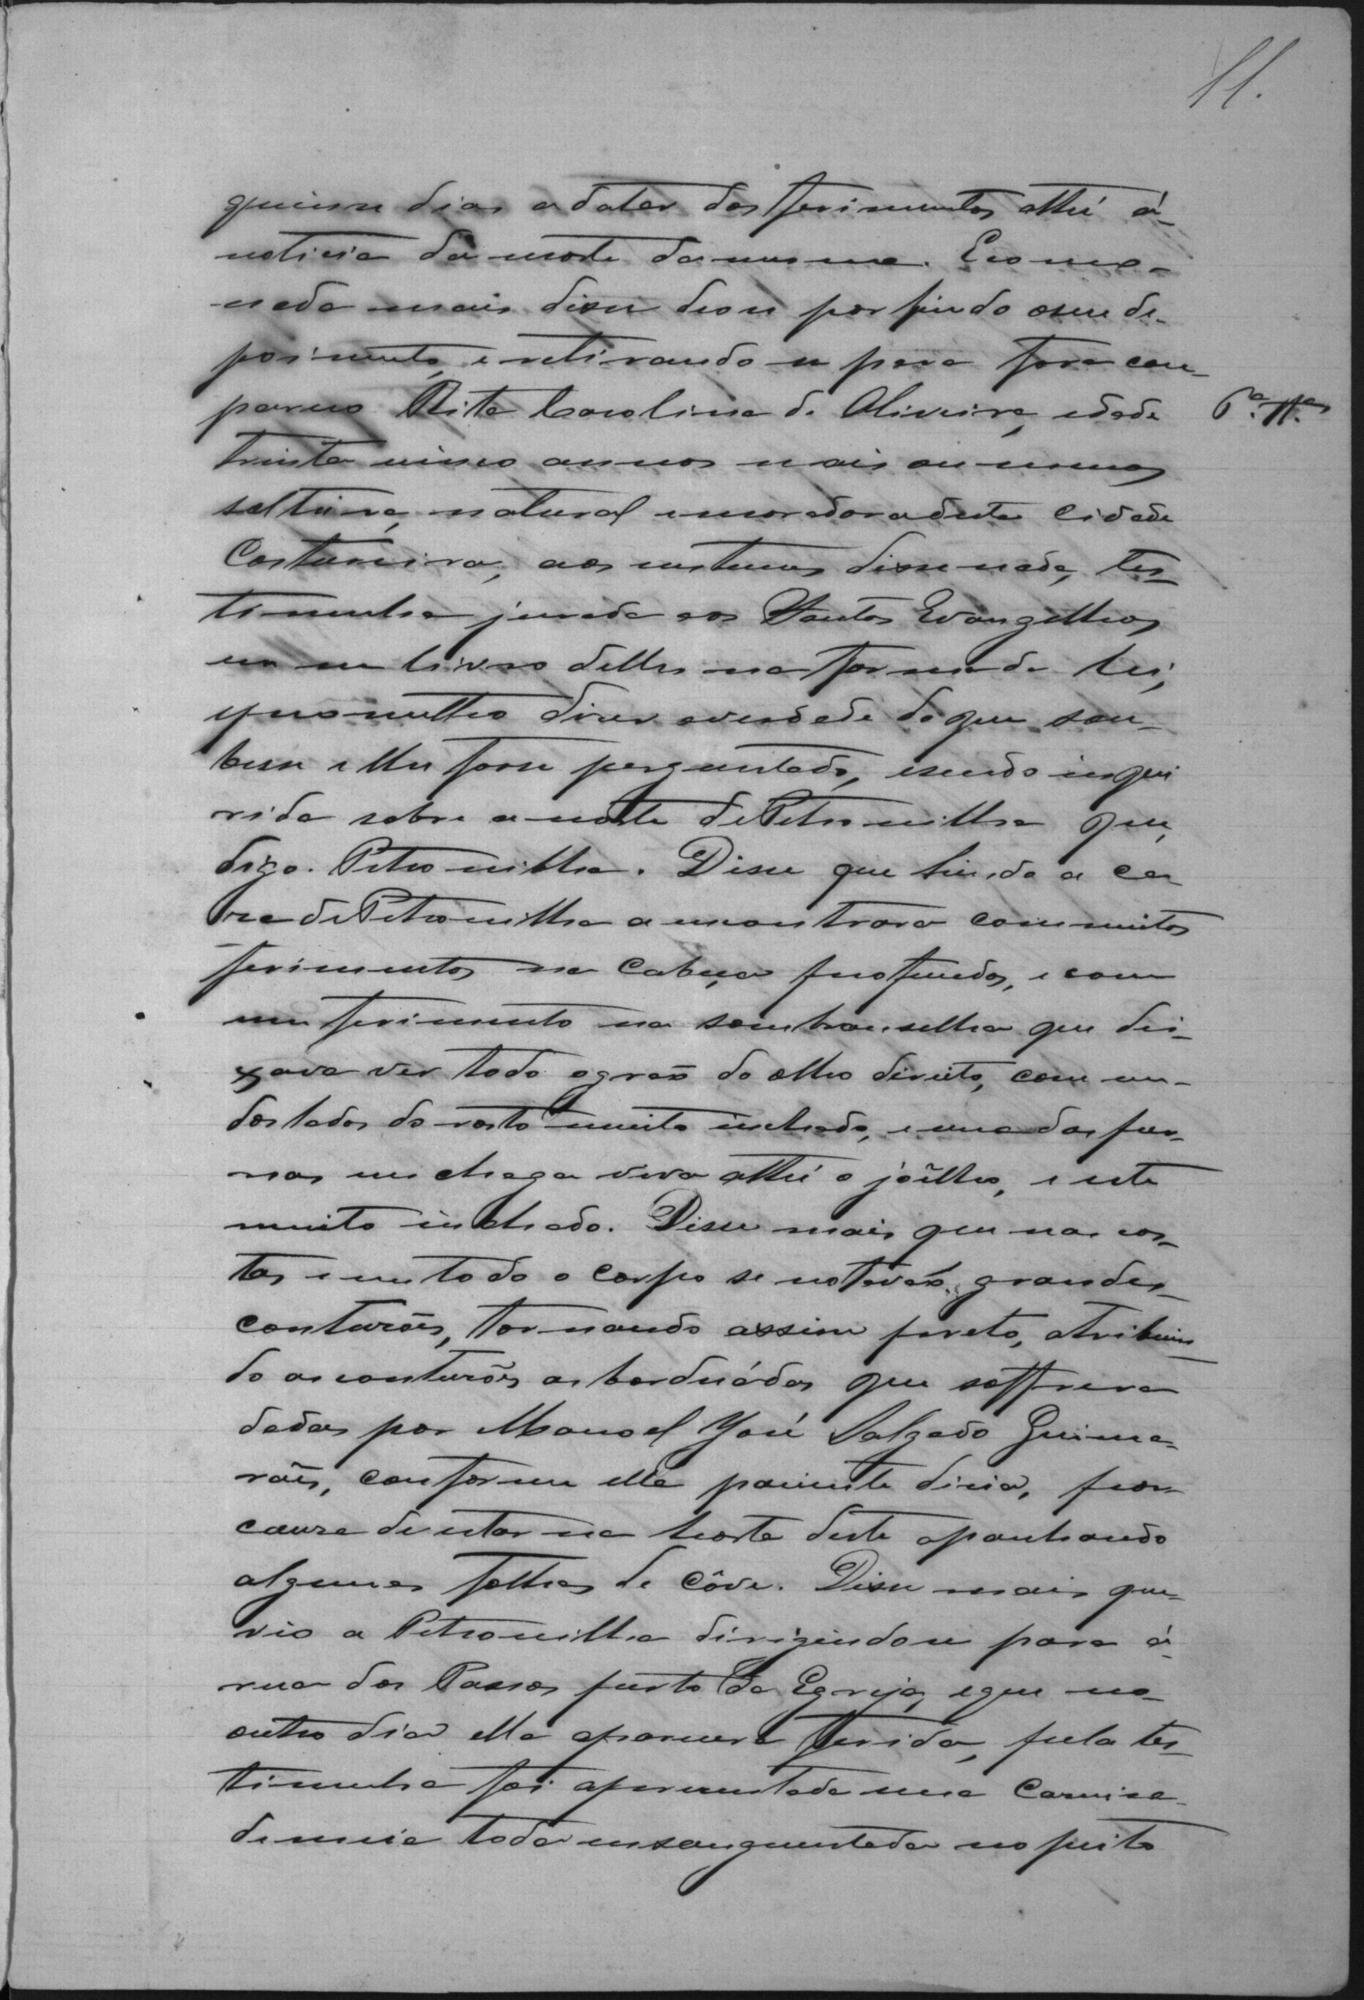 11.
quinse dias a datar dos ferimentos athé á
noticia da morte da mesma. E como
nada mais disse deose por findo o seu de-
poimento, e retirando se para fora com-
pareceo Rita Carolina de Oliveira, edade 6ª. Tª.
trinta cinco annos mais ou menos
solteira, natural e moradora desta Cidade
Costureira, aos custumes disse nada, tes-
timunha jurada aos Santos Evangelhos
em um livro delles na forma da Lei,
e prometteo dizer a verdade do que sou-
besse e lhe fosse perguntado, e sendo inque
rida sobre a morte de Petronilha que,
digo. Petronilha. Disse que hindo a ca
sa de Petronilha a encontrara com muitos
ferimentos na cabeça profundos, e com
um ferimento na sombranselha que dei-
xava ver todo o grão do olho direito, com um
dos lados do rosto muito inchado, e uma das per-
nas em chaga viva athé o joêlho, e este
muito inchado. Disse mais que nas cos-
tas e em todo o corpo se notavão grandes
contuzões, tornando assim preto, atribuin-
do as contuzões as bordoádas que soffrera
dadas por Manoel José Salgado Guima-
rães, conforme ella paciente dizia, por
causa de estar na horta deste apanhando
algumas folhas de côve. Disse mais que
vio a Petronilha dirigindose para á
rua dos Passos perto da Egreja, e que no
outro dia ella aparecera ferida, pela tes-
timunha foi apresentada uma Camisa
de meia toda ensanguentada no peito